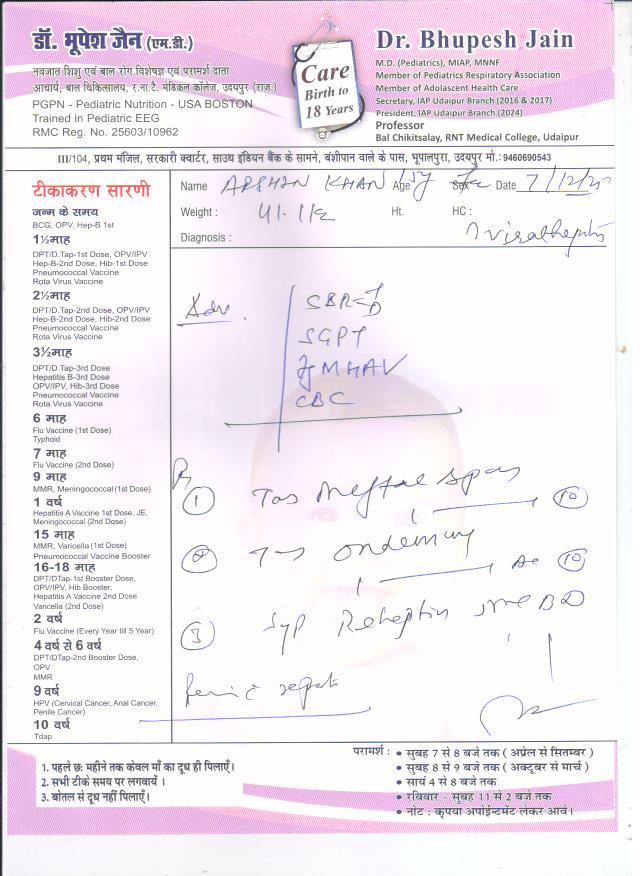 डॉ. भूपेश जैन (एम.डी.)
नवजात शिशु एवं बाल रोग विशेषज्ञ एवं परामर्श दाता
आचार्य, बाल चिकित्सालय, र.ना.टै. मेडिकल कॉलेज, उदयपुर (राज.)
PGPN - Pediatric Nutrition - USA BOSTON
Trained in Pediatric EEG
RMC Reg. No. 25603/10962
Care
Birth to
18 Years
Dr. Bhupesh Jain
M.D. (Pediatrics), MIAP, MNNF
Member of Pediatrics Respiratory Association
Member of Adolascent Health Care
Secretary, IAP Udaipur Branch (2016 & 2017)
President, IAP Udaipur Branch (2024)
Professor
Bal Chikitsalay, RNT Medical College, Udaipur
III/104, प्रथम मंजिल, सरकारी क्वार्टर, साउथ इंडियन बैंक के सामने, बंशीपान वाले के पास, भूपालपुरा, उदयपुर मो.: 9460690543
Name ARSHIN KHAN Age Sex Date 7/12/
Weight : 41.1 Ht. HC :
Diagnosis :
टीकाकरण सारणी
जन्म के समय
BCG, OPV, Hep-B 1st
1½माह
DPT/D.Tap-1st Dose, OPV/IPV
Hep-B-2nd Dose, Hib-1st Dose
Pneumococcal Vaccine
Rota Virus Vaccine
2½माह
DPT/D.Tap-2nd Dose, OPV/IPV
Hep-B-2nd Dose, Hib-2nd Dose
Pneumococcal Vaccine
Rota Virus Vaccine
3½माह
DPT/D.Tap-3rd Dose
Hepatitis B-3rd Dose
OPV/IPV, Hib-3rd Dose
Pneumococcal Vaccine
Rota Virus Vaccine
6 माह
Flu Vaccine (1st Dose)
Typhoid
7 माह
Flu Vaccine (2nd Dose)
9 माह
MMR, Meningococcal (1st Dose)
1 वर्ष
Hepatitis A Vaccine 1st Dose, JE,
Meningococcal (2nd Dose)
15 माह
MMR, Varicella (1st Dose)
Pneumococcal Vaccine Booster
16-18 माह
DPT/DTap-1st Booster Dose,
OPV/IPV, Hib Booster,
Hepatitis A Vaccine 2nd Dose
Varicella (2nd Dose)
2 वर्ष
Flu Vaccine (Every Year till 5 Year)
4 वर्ष से 6 वर्ष
DPT/DTap-2nd Booster Dose,
OPV
MMR
9 वर्ष
HPV (Cervical Cancer, Anal Cancer,
Penile Cancer)
10 वर्ष
Tdap
Adv.
SBR
SGPT
IgM HAV
CBC
Rx
1 Tab Meftal Spas
10
2
10
3 Syp BD
1. पहले छ: महीने तक केवल माँ का दूध ही पिलाएँ।
2. सभी टीके समय पर लगवायें ।
3. बोतल से दूध नहीं पिलाएँ।
परामर्श : • सुबह 7 से 8 बजे तक ( अप्रेल से सितम्बर )
• सुबह 8 से 9 बजे तक ( अक्टूबर से मार्च )
• सायं 4 से 8 बजे तक
• रविवार - सुबह 11 से 2 बजे तक
• नोट : कृपया अपोईन्टमेंट लेकर आवें।